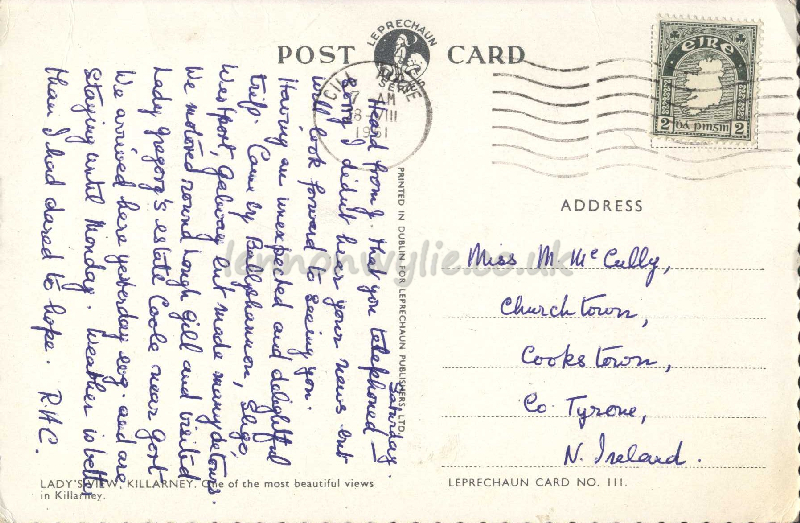 POST CARD
LEPRECHAUN
SERIES
CILL AIRNE
7 AM
8 VIII
1961
EIRE
2 pinsin 2
Heard from J. that you telephoned —
Saturday.
Sorry I didn't hear your news but
will look forward to seeing you.
Having an unexpected and delightful
trip. Came by Ballyshannon, Sligo,
Westport, Galway but made many detours.
We motored round Lough Gill and visited
Lady Gregory's estate Coole near Gort.
We arrived here yesterday evg. and are
staying until Monday. Weather is better
than I had dared to hope. R.A.C.
PRINTED IN DUBLIN FOR LEPRECHAUN PUBLISHERS, LTD.
ADDRESS
Miss M. McCully,
Churchtown,
Cookstown,
Co. Tyrone,
N. Ireland.
lennonwylie.co.uk
LADY'S VIEW, KILLARNEY. One of the most beautiful views
in Killarney.
LEPRECHAUN CARD NO. 111.